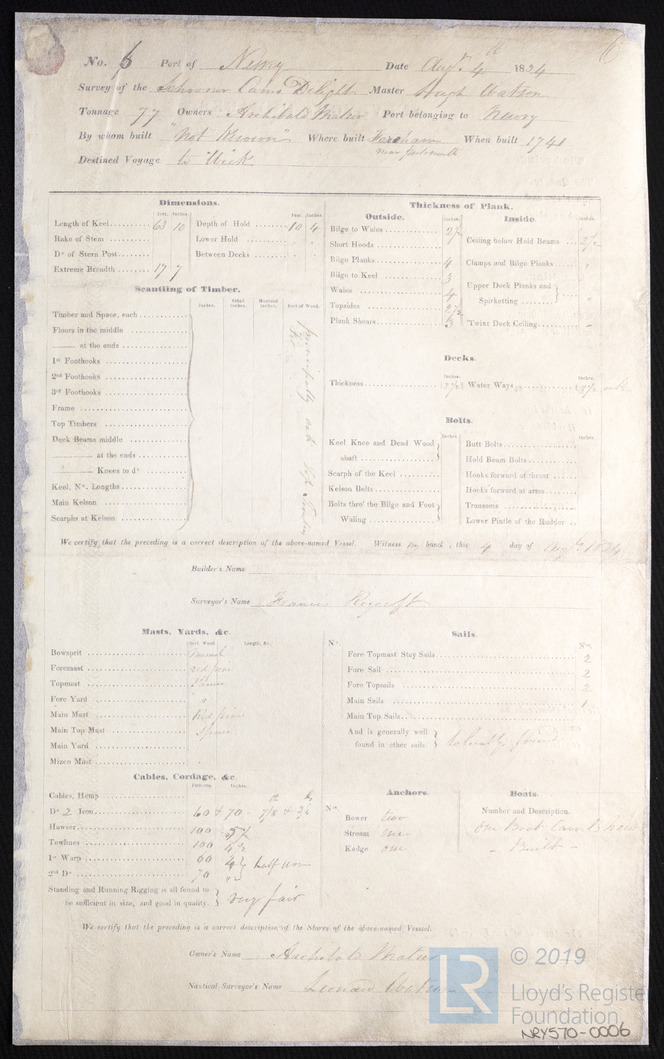 No. 6 Port of Newry Date Augt. 4th 1834
Survey of the Schooner Cairns Delight Master Hugh Watson
Tonnage 77 Owners Archibald Port belonging to Newry
By whom built "Not Known" Where built near Portsmouth When built 1741
Destined Voyage to Wick
Dimensions.
Feet. Inches. Feet. Inches.
Length of Keel 63 10 Depth of Hold 10 4
Rake of Stem Lower Hold "
Do. of Stern Post Between Decks "
Extreme Breadth 17 7
Thickness of Plank.
Outside. Inside.
Inches. Inches.
Bilge to Wales 2½ Ceiling below Hold Beams 2½
Short Hoods
Bilge Planks 4 Clamps and Bilge Planks
Bilge to Keel 3 Upper Deck Planks and
Wales 4 Spirketting
Topsides 2½
Plank Shears 3 Twixt Deck Ceiling
Scantling of Timber.
Inches. Sided Inches. Moulded Inches. Sort of Wood.
Timber and Space, each
Floors in the middle
at the ends
1st Foothooks
2nd Foothooks
3rd Foothooks
Frame
Top Timbers
Deck Beams middle
at the ends
" Knees to do
Keel, No. Lengths
Main Kelson
Scarphs at Kelson
principally oak
Decks.
Inches. Inches.
Thickness Water Ways oak
Bolts.
Inches. Inches.
Keel Knee and Dead Wood abaft Butt Bolts
Hold Beam Bolts
Scarph of the Keel Hooks forward at throat
Kelson Bolts Hooks forward at arms
Bolts thro' the Bilge and Foot Waling Transoms
Lower Pintle of the Rudder
We certify that the preceding is a correct description of the above-named Vessel. Witness my hand, this 4 day of Augt. 1834
Builder's Name
Surveyor's Name Francis Rycroft
Masts, Yards, &c.
Sort Wood. Length, &c.
Bowsprit
Foremast red pine
Topmast
Fore Yard "
Main Mast Red pine
Main Top Mast Spruce
Main Yard
Mizen Mast
Sails.
No. No.
Fore Topmast Stay Sails 2
Fore Sail 2
Fore Topsails 2
Main Sails 1
Main Top Sails
And is generally well found in other sails. tolerably found
Cables, Cordage, &c.
Fathoms. Inches.
Cables, Hemp
Do. 2 Iron 60 & 70 7/8 & 3/4
Hawser 100 5½
Towlines 100 4½
1st Warp 60 4½ half worn
2nd Do. 70 "
Standing and Running Rigging is all found to be sufficient in size, and good in quality. very fair
Anchors.
No.
Bower two
Stream one
Kedge one
Boats.
Number and Description.
One Boat
- Built -
We certify that the preceding is a correct description of the Stores of the above-named Vessel.
Owner's Name Archibald
Nautical Surveyor's Name Watson
LR
© 2019
Lloyd's Register
Foundation
NRY570-0006